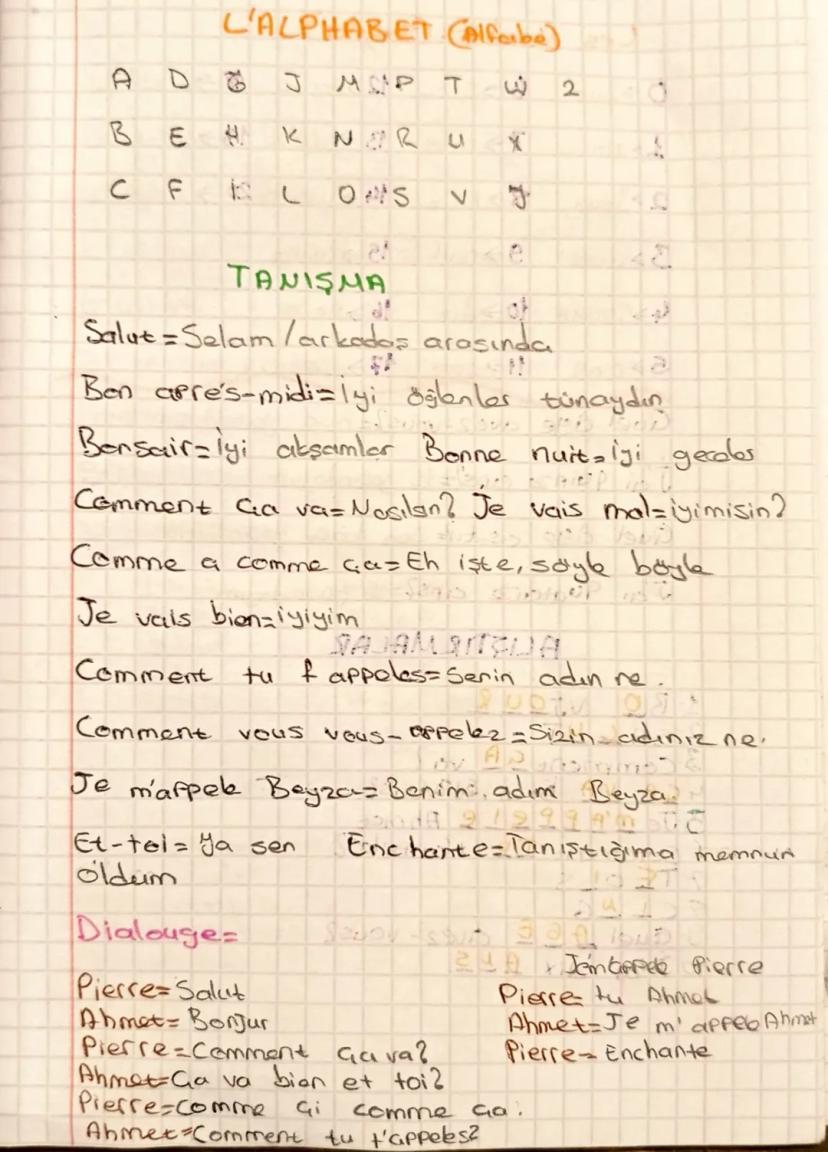 L'ALPHABET (Alfabe)
A D G J M P T W Z
B E H K N R U X
C F I L O S V Y
TANIŞMA
Salut = Selam / arkadaş arasında
Bon aprés-midi = İyi öğlenler tünaydın
Bonsair = İyi akşamlar Bonne nuit = İyi geceler
Comment ça va = Nasılsın? Je vais mal = iyimisin?
Comme a comme ça = Eh işte, söyle böyle
Je vais bien = iyiyim
Comment tu t appeles = Senin adın ne.
Comment vous vous-appelez = Sizin adınız ne.
Je m'appele Beyza = Benim adım Beyza
Et-toi = Ya sen Enchante = Tanıştığıma memnun
oldum
Dialouge=
Pierre = Salut
Ahmet = Bonjur
Pierre = Comment ça va?
Ahmet = Ça va bien et toi?
Pierre = comme çi comme ça.
Ahmet = Comment tu t'appeles?
Jem'appele Pierre
Pierre = tu Ahmet
Ahmet = Je m'appele Ahmet
Pierre = Enchante